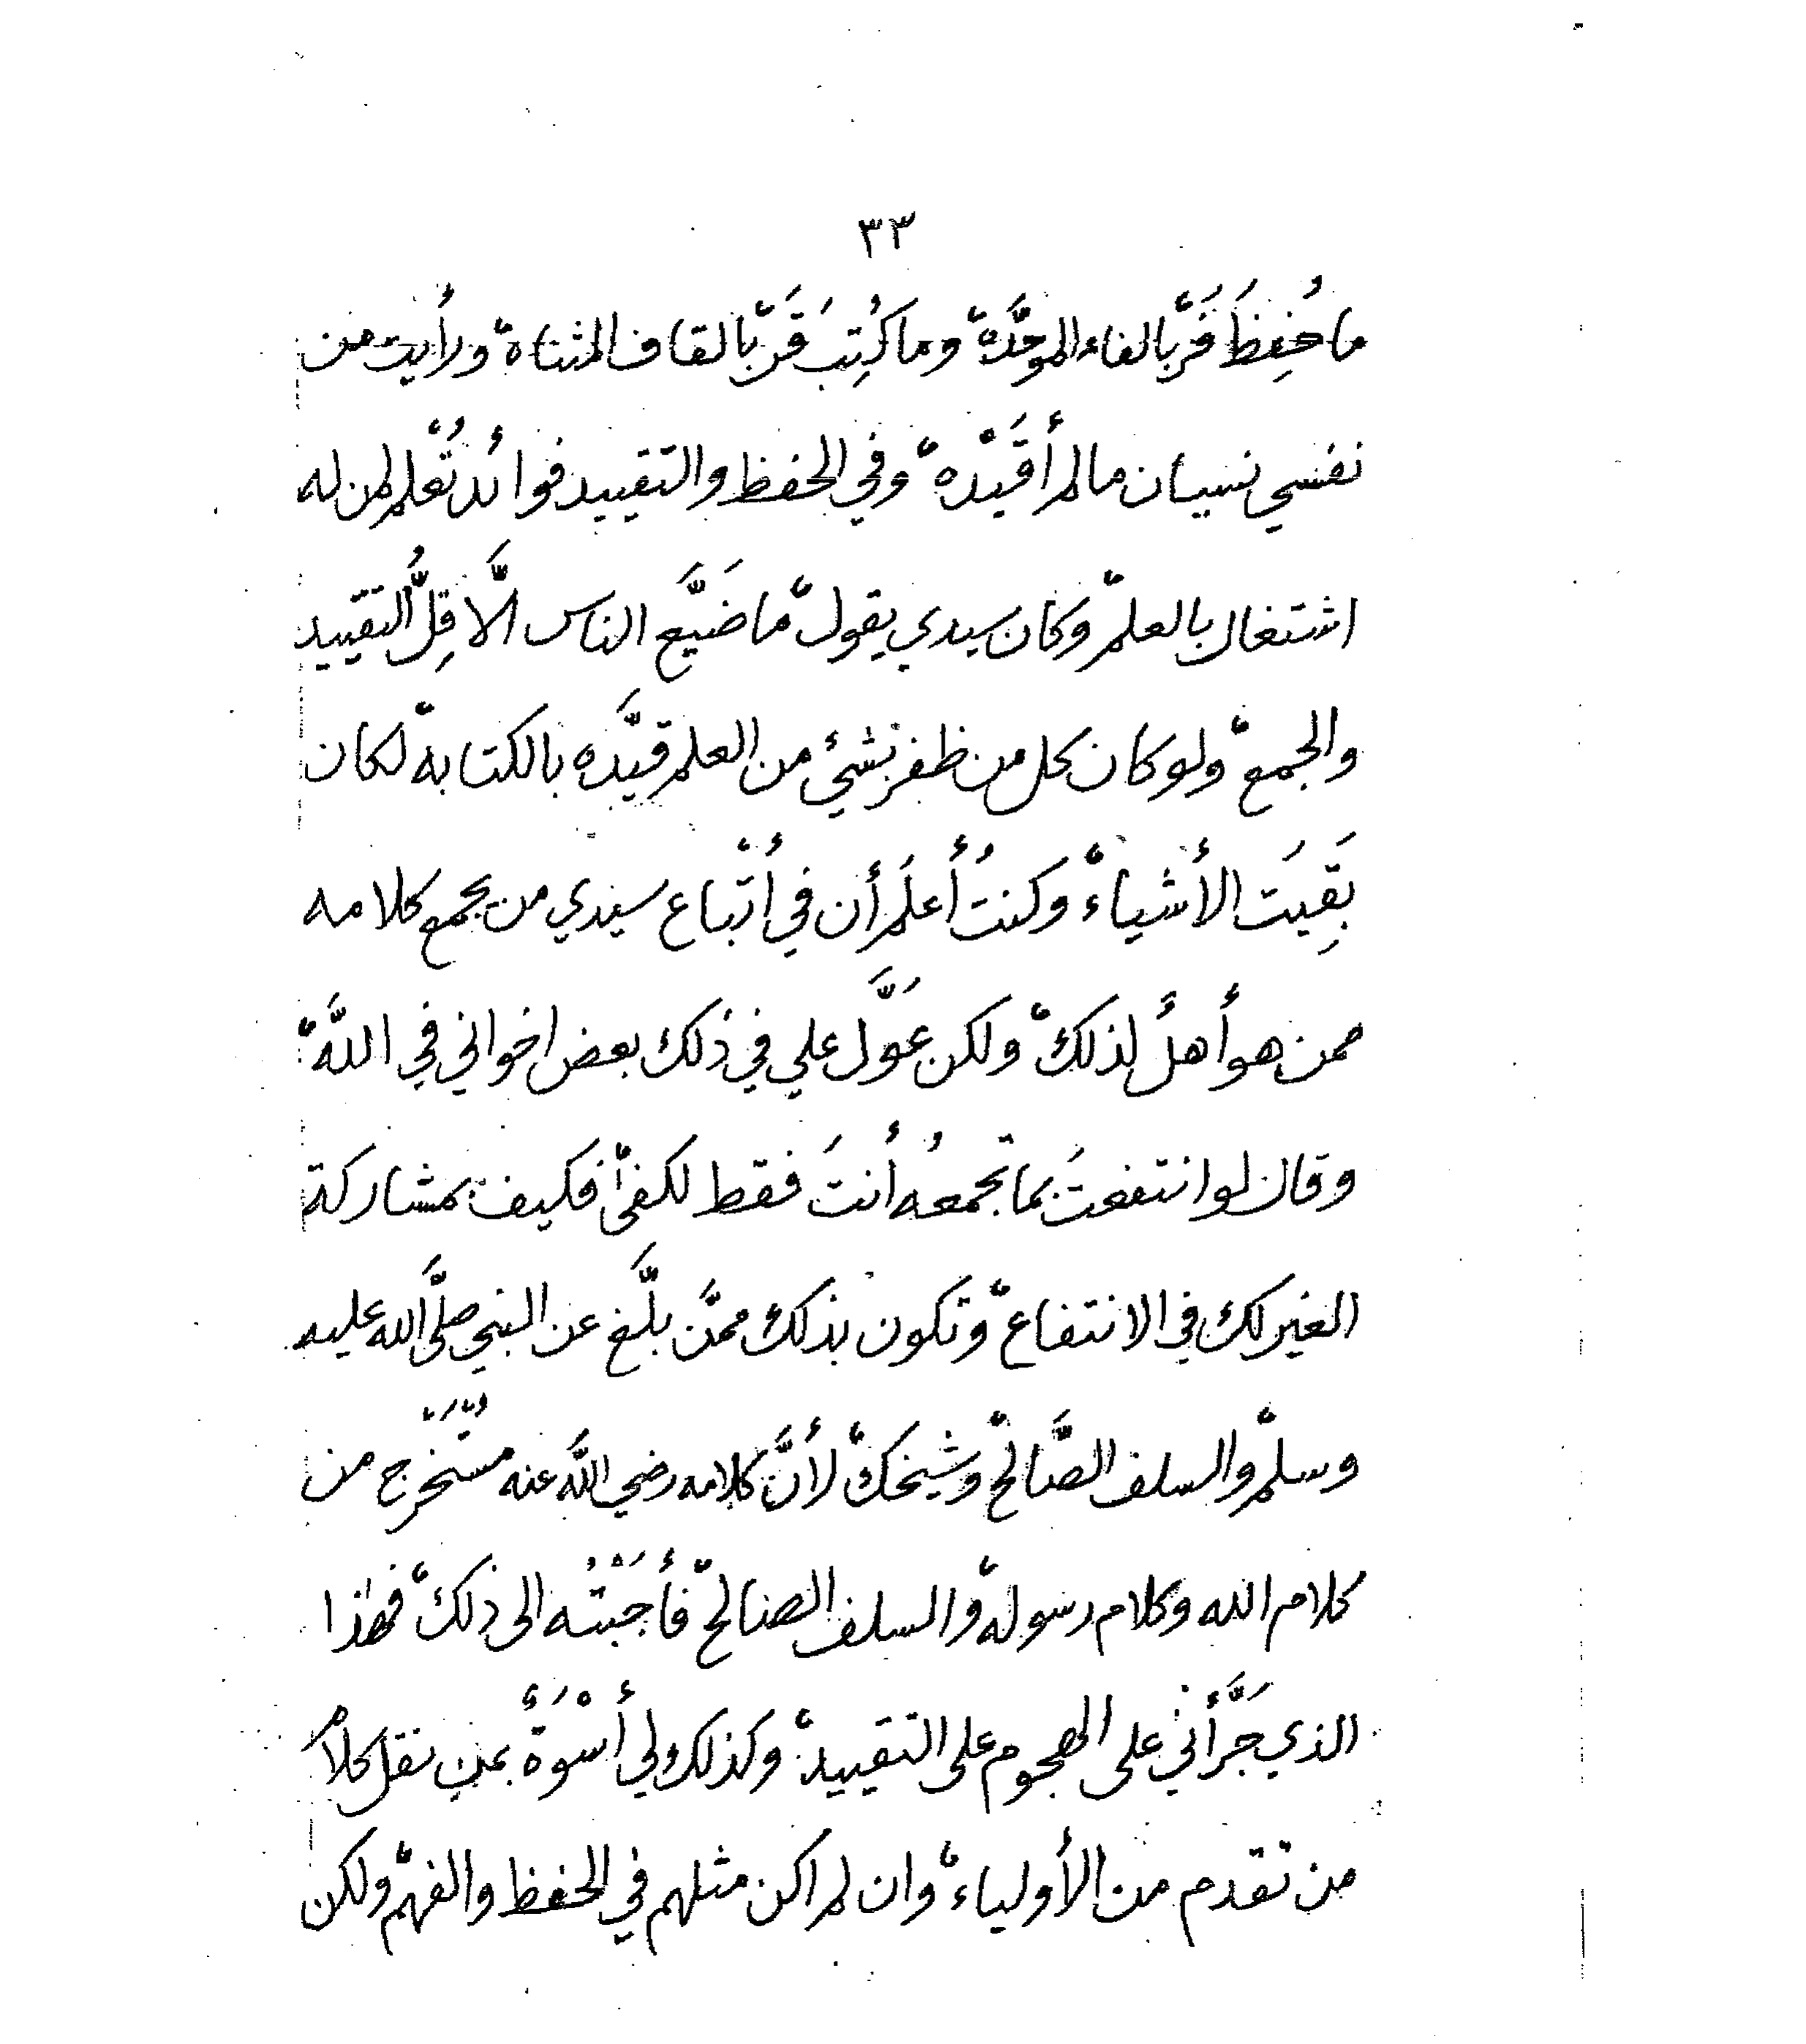 ٣٣
ما حُفِظَ فَرَّ بالفاء الموحَّدة، وما كُتِبَ قَرَّ بالقاف المثناة، ورأيت من
نفسي نسيان ما لم أُقَيِّدْه، وفي الحفظ والتقييد فوائدُ تُعْلم لمن له
اشتغال بالعلم، وكان سيدي يقول، ما ضَيَّع الناس الَّا قِلُّ التقييد
والجمع، ولو كان كل من ظفر بشئ من العلم قيَّده بالكتابة، لكان
بَقِيَت الأشياء، وكنتُ أُعلَم أن في أَتْباع سيدي من يجمع كلامه
ممن هو أهلً لذلك، ولكن عَوَّل علي في ذلك بعض اخواني في اللَّه،
وقال لو انتفعتَ بما تجمعُه أنتَ فقط لكفىٰ، فكيف بمشاركة
الغير لك في الانتفاع، وتكون بذلك ممَّن بلَّغ عن النبي صلَّى الله عليه
وسلم، والسلف الصَّالح، وشيخك، لأنَّ كلامه رضي اللَّه عنه مسْتَخْرج من
كلام الله وكلام رسوله، والسلف الصالح، فأَجَبْتُه الى ذلك، فهٰذا
الذي جَرَّأني على الهجوم على التقييد، وكذلك لي أُسْوَةٌ بمن نقل كلاَمَ
من تقدم من الأولياء، وان لم اكن مثلهم في الحفظ والفهم، ولكن